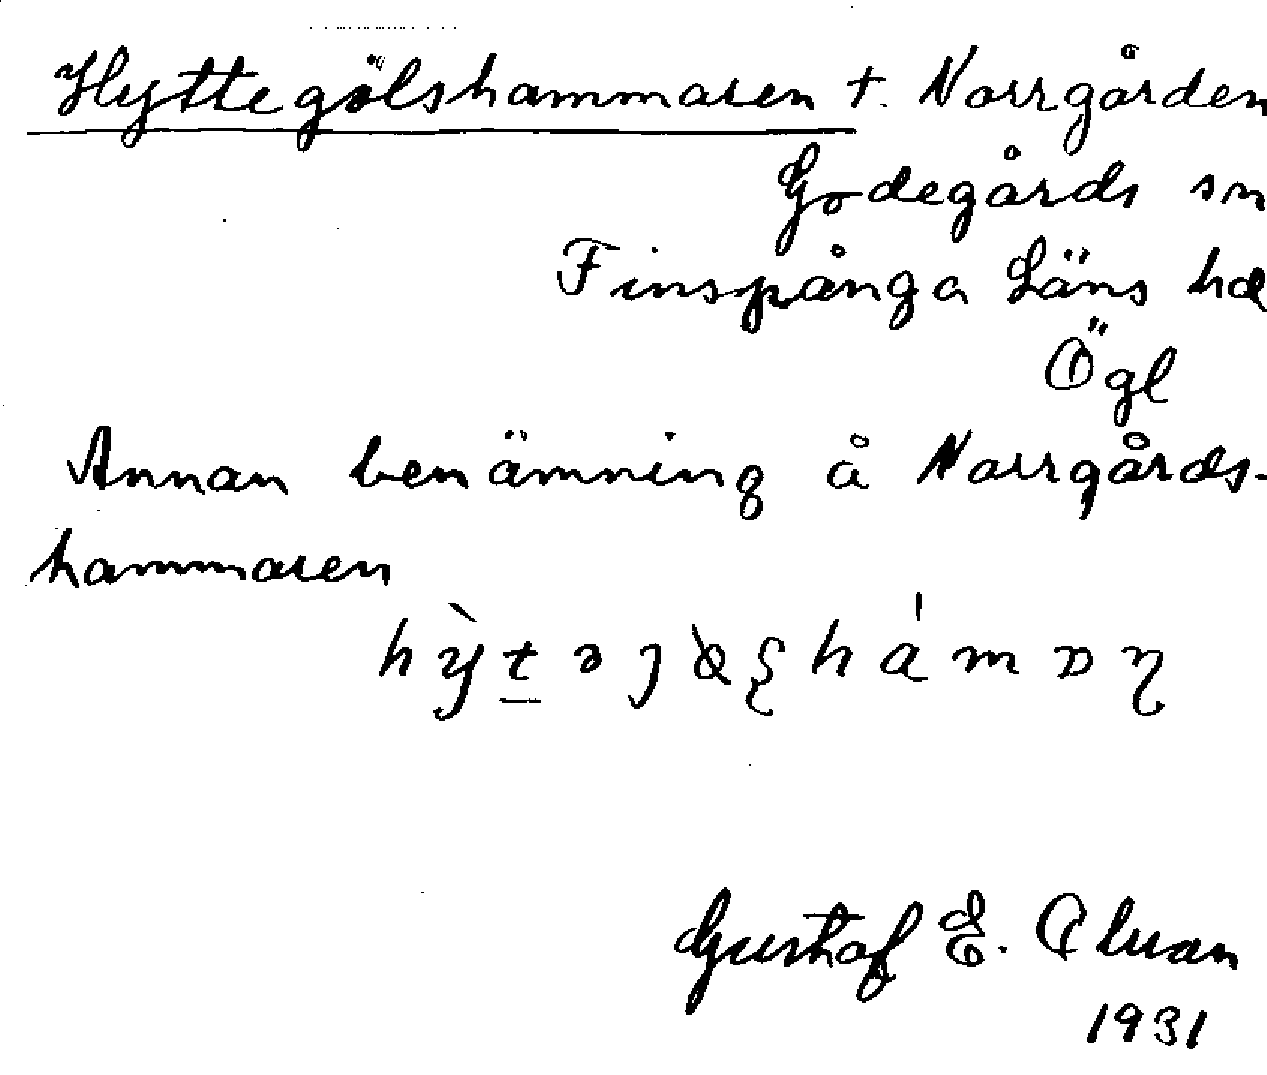 Hyttegölshammaren t. Norrgården
Godegårds sn
Finspånga Läns hd
Ögl
Annan benämning å Norrgårds-
hammaren
Gustaf E.
1931